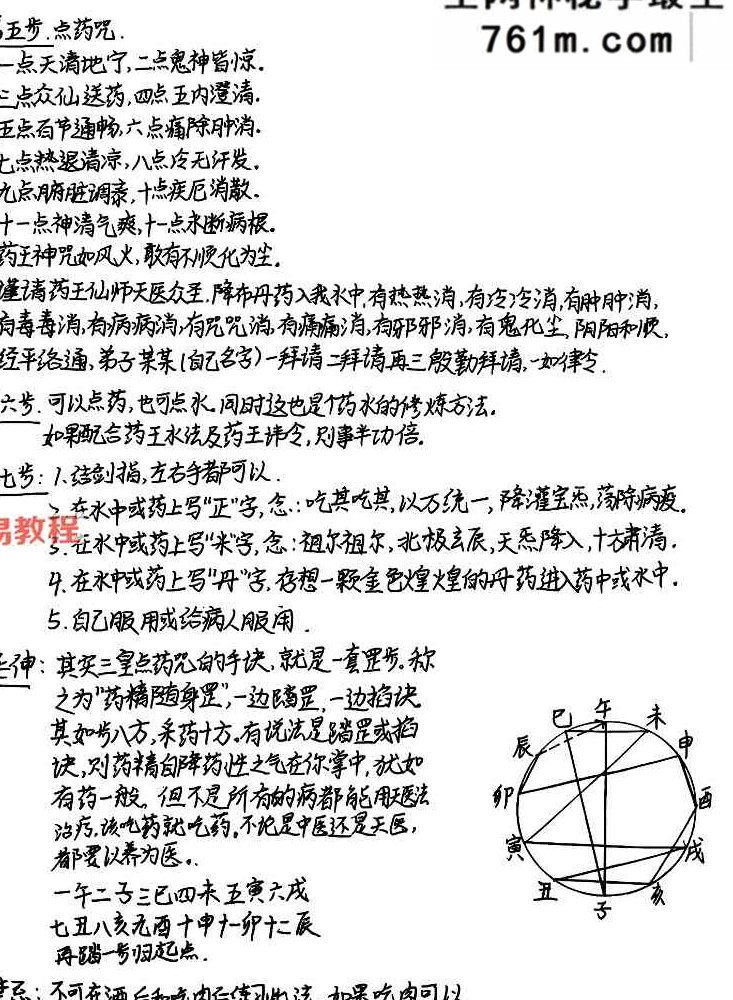 761m.com
五步.点药咒.
一点天清地宁,二点鬼神皆惊.
三点众仙送药,四点五内澄清.
五点百节通畅,六点痛除肿消.
七点热退清凉,八点冷无汗发.
九点腑脏调泰,十点疾厄消散.
十一点神清气爽,十一点永断病根.
药王神咒如风火,敢有不顺化为尘.
谨请药王仙师天医众圣.降布丹药入我水中,有热热消,有冷冷消,有肿肿消,
有毒毒消,有病病消,有咒咒消,有痛痛消,有邪邪消,有鬼化尘,阴阳和顺,
经平络通,弟子某某(自己名字)一拜请二拜请再三殷勤拜请,一如律令.
六步.可以点药,也可点水.同时这也是个药水的修炼方法.
如果配合药王水法及药王讳令,则事半功倍.
七步:1.结剑指,左右手都可以.
2.在水中或药上写"正"字,念:吃其吃其,以万统一,降灌宝炁,荡除病疫.
易教程
3.在水中或药上写"米"字,念:祖尔祖尔,北极玄辰,天炁降入,十方肃清.
4.在水中或药上写"丹"字,存想一颗金色煌煌的丹药进入药中或水中.
5.自己服用或给病人服用.
延伸:其实三皇点药咒的手诀,就是一套罡步.称
之为"药精随身罡",一边踏罡,一边掐诀.
其如步八方,采药十方.有说法是踏罡或掐
诀,则药精自降药性之气在你掌中,犹如
有药一般.但不是所有的病都能用天医法
治疗,该吃药就吃药.不论是中医还是天医,
都要以养为医.
一午二子三巳四未五寅六戌
七丑八亥九酉十申十一卯十二辰
再踏一步归起点.
午
巳
未
辰
申
卯
酉
寅
戌
丑
亥
子